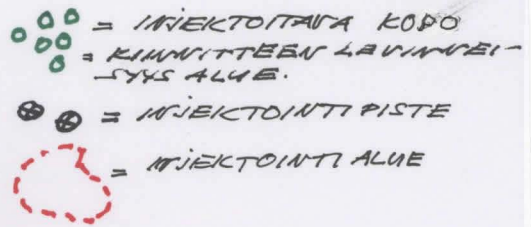 = INJEKTOITAVA KOPO
= KIINNITTEEN LEVINNEI-
SYYS ALUE.
= INJEKTOINTI PISTE
= INJEKTOINTI ALUE